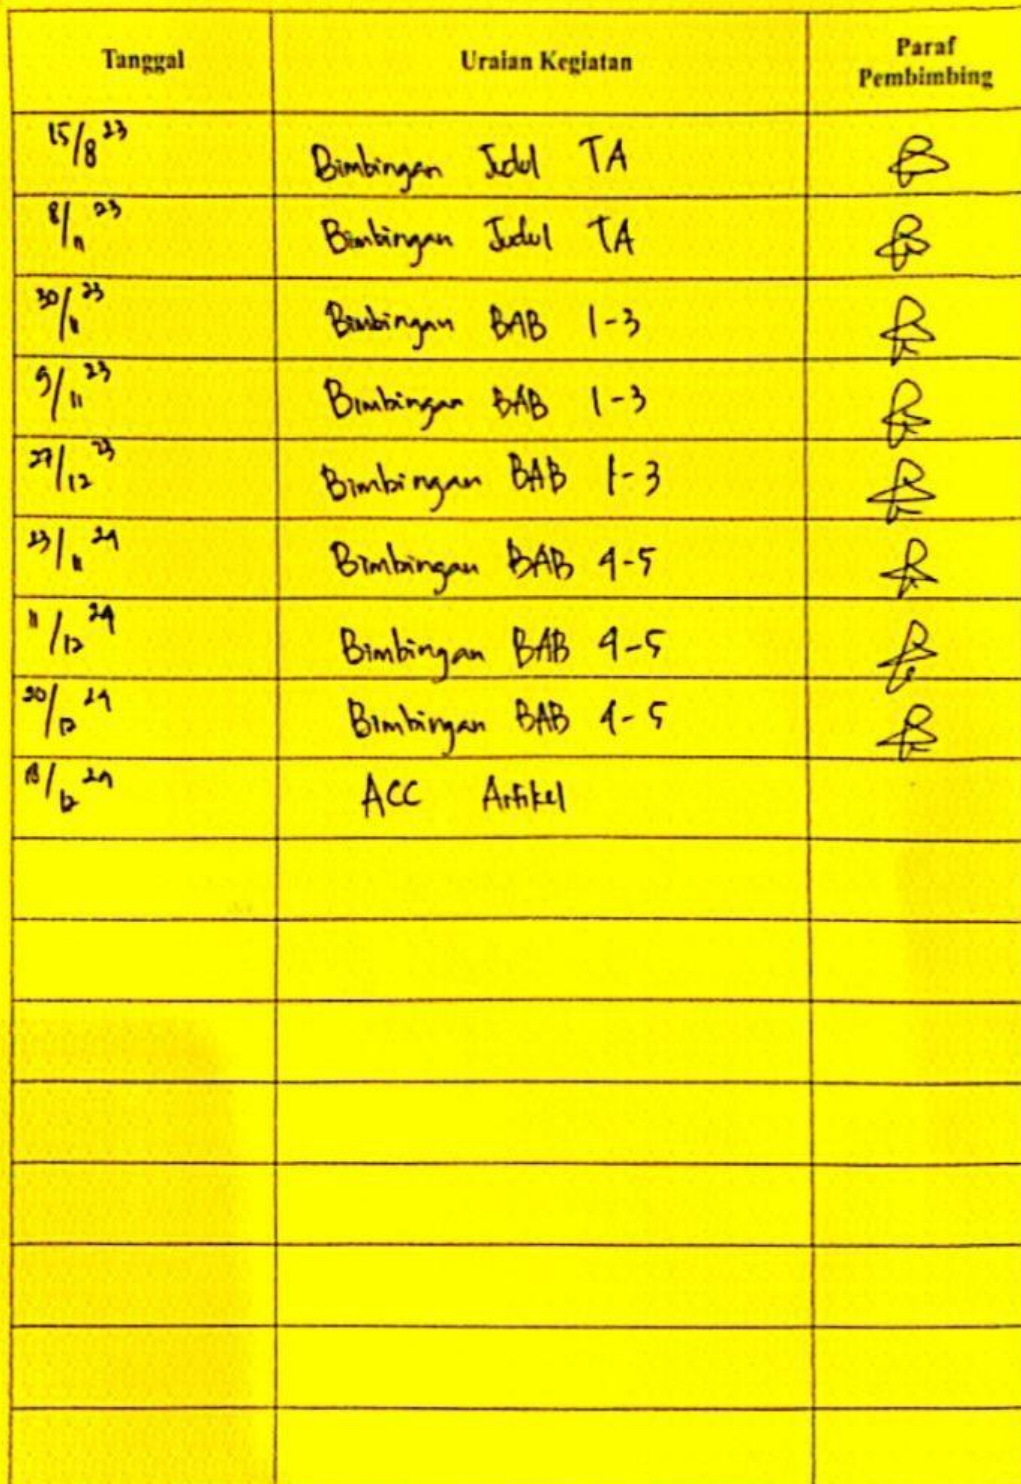 Tanggal Uraian Kegiatan Paraf Pembimbing
15/8 23 Bimbingan Judul TA
8/11 23 Bimbingan Judul TA
30/11 23 Bimbingan BAB 1-3
9/11 23 Bimbingan BAB 1-3
27/12 23 Bimbingan BAB 1-3
23/11 24 Bimbingan BAB 4-5
11/12 24 Bimbingan BAB 4-5
Bimbingan BAB 4-5
ACC Artikel